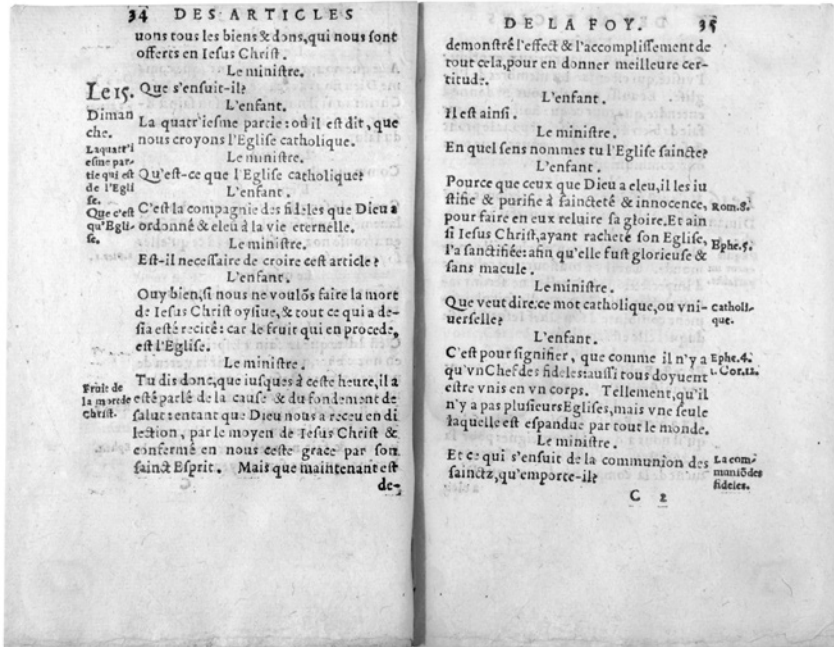 34 DES ARTICLES
uons tous les biens & dons, qui nous sont
offerts en Iesus Christ.
Le ministre.
Le 15. Dimanche.
Que s'ensuit-il?
L'enfant.
La quatr'iesme partie: où il est dit, que
nous croyons l'Eglise catholique.
La quatr'i
esme par-
tie qui est
de l'Egli
se.
Le ministre.
Qu'est-ce que l'Eglise catholique?
L'enfant.
Que c'est
qu'Egli-
se.
C'est la compagnie des fideles que Dieu a
ordonné & eleu à la vie eternelle.
Le ministre.
Est-il necessaire de croire cest article?
L'enfant.
Ouy bien, si nous ne voulõs faire la mort
de Iesus Christ oysiue, & tout ce qui a de-
sia esté recité: car le fruit qui en procede,
est l'Eglise.
Le ministre.
Fruit de
la mort de
Christ.
Tu dis donc, que iusques à ceste heure, il a
esté parlé de la cause & du fondement de
salut: entant que Dieu nous a receu en di
lection, par le moyen de Iesus Christ &
confermé en nous ceste grace par son
sainct Esprit. Mais que maintenant est
de-
DE LA FOY. 35
demonstré l'effect & l'accomplissement de
tout cela, pour en donner meilleure cer-
titude.
L'enfant.
Il est ainsi.
Le ministre.
En quel sens nommes tu l'Eglise saincte?
L'enfant.
Pource que ceux que Dieu a eleu, il les iu
stifie & purifie à saincteté & innocence,
pour faire en eux reluire sa gloire. Et ain
si Iesus Christ, ayant racheté son Eglise,
l'a sanctifiée: afin qu'elle fust glorieuse &
sans macule.
Rom. 8.
Ephe. 5.
Le ministre.
Que veut dire ce mot catholique, ou vni-
uerselle?
catholi-
que.
L'enfant.
C'est pour signifier, que comme il n'y a
qu'vn Chef des fideles: aussi tous doyuent
estre vnis en vn corps. Tellement, qu'il
n'y a pas plusieurs Eglises, mais vne seule
laquelle est espandue par tout le monde.
Ephe. 4.
1. Cor. 12.
Le ministre.
Et ce qui s'ensuit de la communion des
sainctz, qu'emporte-il?
La com
muniõ des
fideles.
C 2